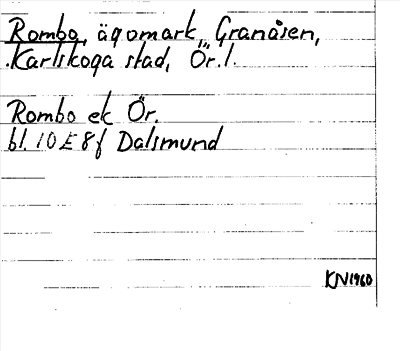 Rombo, ägomark, Granåsen,
Karlskoga stad, Ör. l.
Rombo ek Ör.
bl. 10 E 8 f Dalsmund
KN 1960